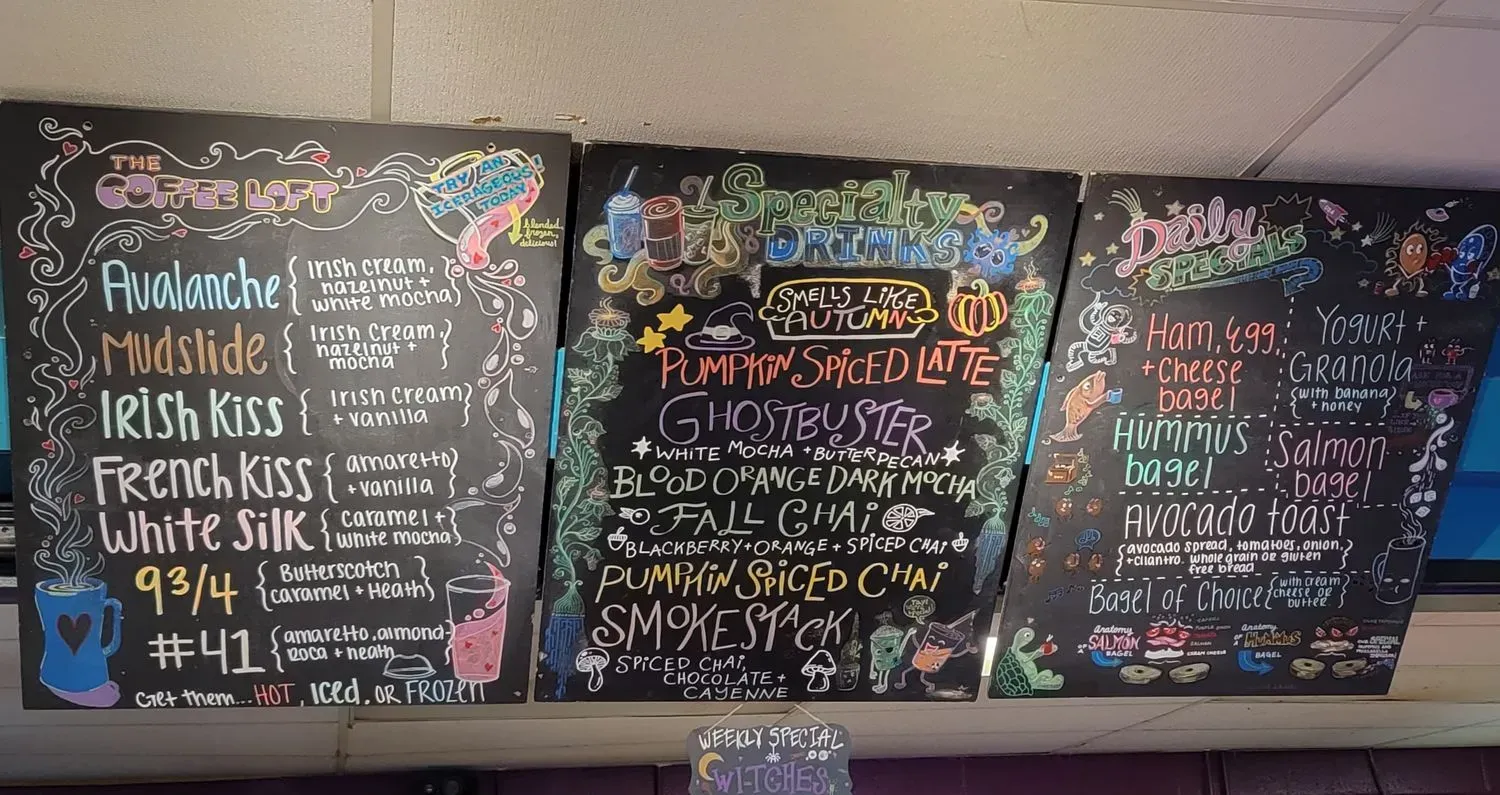 THE
COFFEE LOFT
TRY AN
ICERAGEOUS
TODAY!
blended,
frozen,
delicious!
Avalanche { Irish cream,
hazelnut +
white mocha }
Mudslide { Irish Cream,
hazelnut +
mocha }
Irish Kiss { Irish Cream
+ vanilla }
French Kiss { amaretto
+ vanilla }
White Silk { caramel +
white mocha }
9 3/4 { Butterscotch
caramel + Heath }
#41 { amaretto, almond
roca + heath }
Get them... HOT, Iced, OR FROZEN
Specialty
DRINKS
SMELLS LIKE
AUTUMN
PUMPKIN SPICED LATTE
GHOSTBUSTER
WHITE MOCHA + BUTTER PECAN
BLOOD ORANGE DARK MOCHA
FALL CHAI
BLACKBERRY + ORANGE + SPICED CHAI
PUMPKIN SPICED CHAI
SMOKESTACK
SPICED CHAI,
CHOCOLATE +
CAYENNE
WEEKLY SPECIAL
WITCHES
Daily
SPECIALS
Ham, Egg,
+ Cheese
bagel
Yogurt +
Granola
{ with banana
+ honey }
Hummus
bagel
Salmon
bagel
Avocado toast
{ avocado spread, tomatoes, onion,
+ cilantro. whole grain or gluten
free bread }
Bagel of Choice { with cream
cheese or
butter. }
Anatomy
OF A
SALMON
BAGEL
CAPERS
SALMON
CREAM CHEESE
Anatomy
OF A
HUMMUS
BAGEL